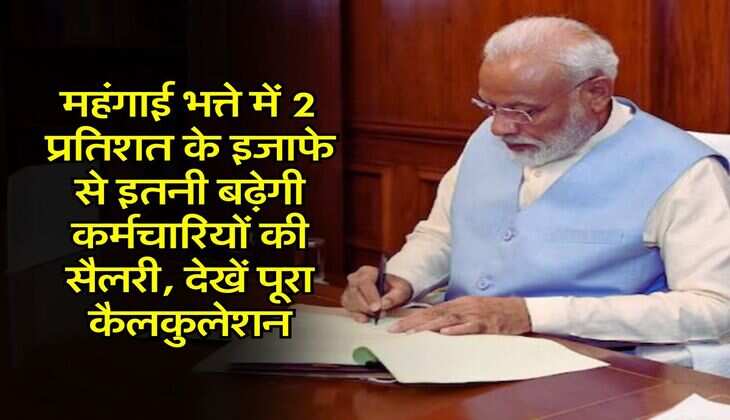 महंगाई भत्ते में 2
प्रतिशत के इजाफे
से इतनी बढ़ेगी
कर्मचारियों की
सैलरी, देखें पूरा
कैलकुलेशन